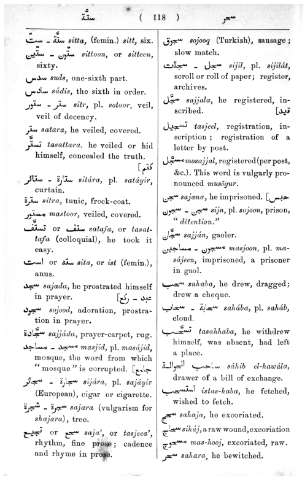 ستّة ( 118 ) سحر
ستّ — ستّة sitta, (femin.) sitt, six.
ستّون — ستّين sittoon, or sitteen,
sixty.
سدس suds, one-sixth part.
سادس sádis, the sixth in order.
ستر — ستور sitr, pl. sotoor, veil,
veil of decency.
ستر satara, he veiled, covered.
تستّر tasattara, he veiled or hid
himself, concealed the truth.
[كتم]
ستارة — ستائر sitára, pl. satáyir,
curtain.
سترة sitra, tunic, frock-coat.
مستور mastoor, veiled, covered.
satafa, or tasat-
tafa (colloquial), he took it
easy.
است or سته sita, or ist (femin.),
anus.
سجد sajada, he prostrated himself
in prayer. [عبد — ركع]
سجود sojood, adoration, prostra-
tion in prayer.
سجّادة sajjáda, prayer-carpet, rug.
مسجد — مساجد masjid, pl. masájid,
mosque, the word from which
"mosque" is corrupted. [جامع]
سجارة — سجائر sijára, pl. sajáyir
(European), cigar or cigarette.
سجرة — شجرة sajara (vulgarism for
shajara), tree.
سجع or تسجيع saja', or tasjeea',
rhythm, fine prose; cadence
and rhyme in prose.
سجوق sajooq (Turkish), sausage;
slow match.
سجلّ — سجلّات sijil, pl. sijilát,
scroll or roll of paper; register,
archives.
سجّل sajjala, he registered, in-
scribed. [قيد]
تسجيل tasjeel, registration, in-
scription; registration of a
letter by post.
مسجّل mosajjal, registered (per post,
&c.) This word is vulgarly pro-
nounced masûgur.
سجن sajana, he imprisoned. [حبس]
سجن — سجون sijn, pl. sojoon, prison,
"ditention."
سجّان sajján, gaoler.
مسجون — مساجين masjoon, pl. ma-
sájeen, imprisoned, a prisoner
in gaol.
سحب sahaba, he drew, dragged;
drew a cheque.
سحابة — سحاب sahába, pl. saháb,
cloud.
تسحّب tasahhaba, he withdrew
himself, was absent, had left
a place.
ساحب الحوالة sáhib el-hawála,
drawer of a bill of exchange.
استحبّ istae-haba, he fetched,
wished to fetch.
سحج sahaja, he excoriated.
sihûj, a raw wound, excoriation
مسحوج mas-hooj, excoriated, raw.
سحر sahara, he bewitched.